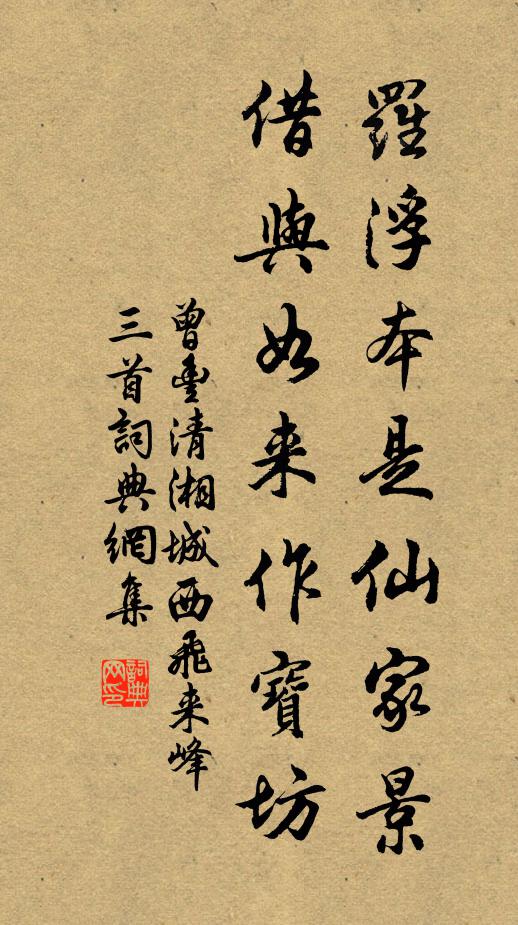 羅浮本是仙家景
借與如来作寶坊
曾豊清湘城西飛来峰
三首詞典網集
詞典网印